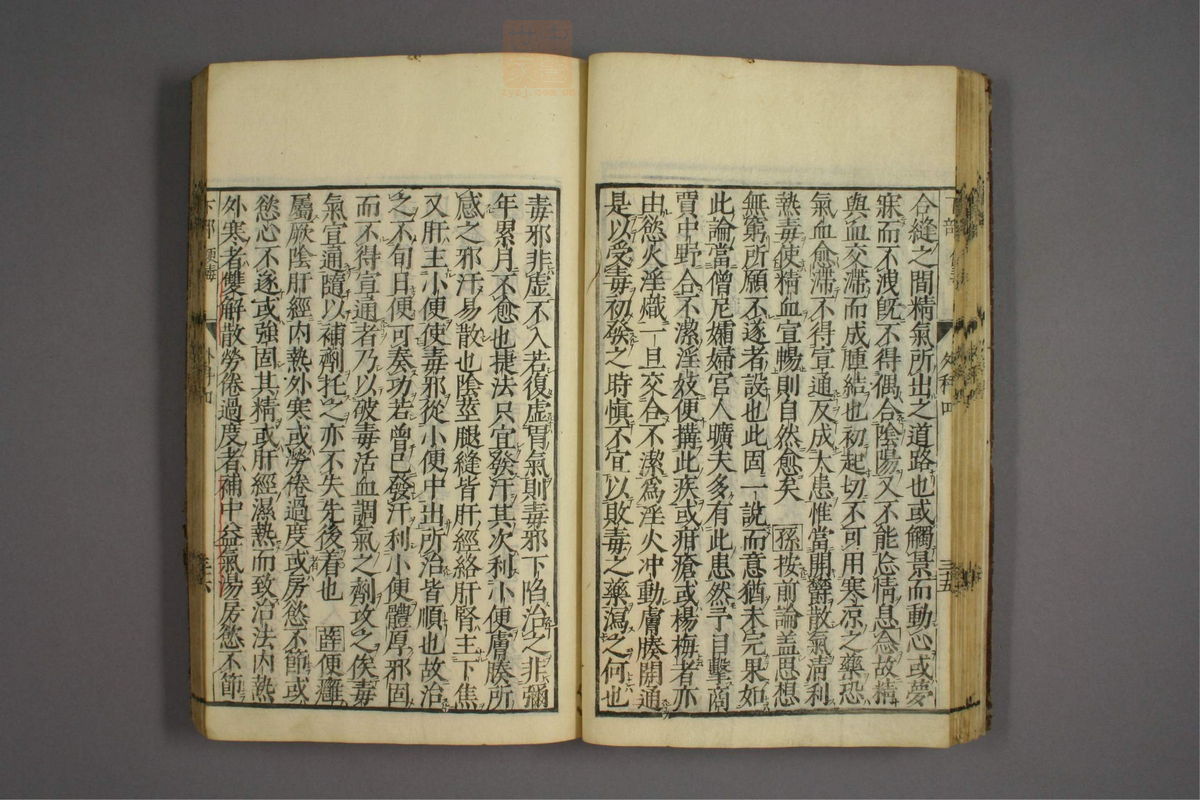 合縫之間精氣所出之道路也或觸景而動心或夢
寐而不洩既不得偶合陰陽又不能忘情息念故精
與血交滯而成腫結也初起切不可用寒凉之藥恐
氣血愈滯不得宣通反成大患惟當開欝散氣清利
熱毒使精血宣暢則自然愈矣 孫按前論盖思想
無窮所願不遂者設也此固一說而意猶未完果如
此論當僧尼孀婦宮人曠夫多有此患然予目擊商
賈中野合不潔淫妓便搆此疾或疳瘡或楊梅者亦
由慾火淫熾一旦交合不潔爲淫火冲動膚腠開通
是以受毒初發之時慎不宜以敗毒之藥瀉之何也
外科四
三五
毒邪非虛不入若復虛胃氣則毒邪下陷治之非彌
年累月不愈也捷法只宜發汗其次利小便膚腠所
感之邪汗易散也陰莖腿縫皆肝經絡肝腎主下焦
又肝主小便使毒邪從小便中出所治皆順也故治
之不旬日便可奏功若曾已發汗利小便體厚邪固
而不得宣通者乃以破毒活血調氣之劑攻之俟毒
氣宜通隨以補劑托之亦不失先後着也 薛便癰
屬厥陰肝經内熱外寒或勞倦過度或房慾不節或
慾心不遂或強固其精或肝經濕熱而致治法内熱
外寒者雙解散勞倦過度者補中益氣湯房慾不節
下部
外科四